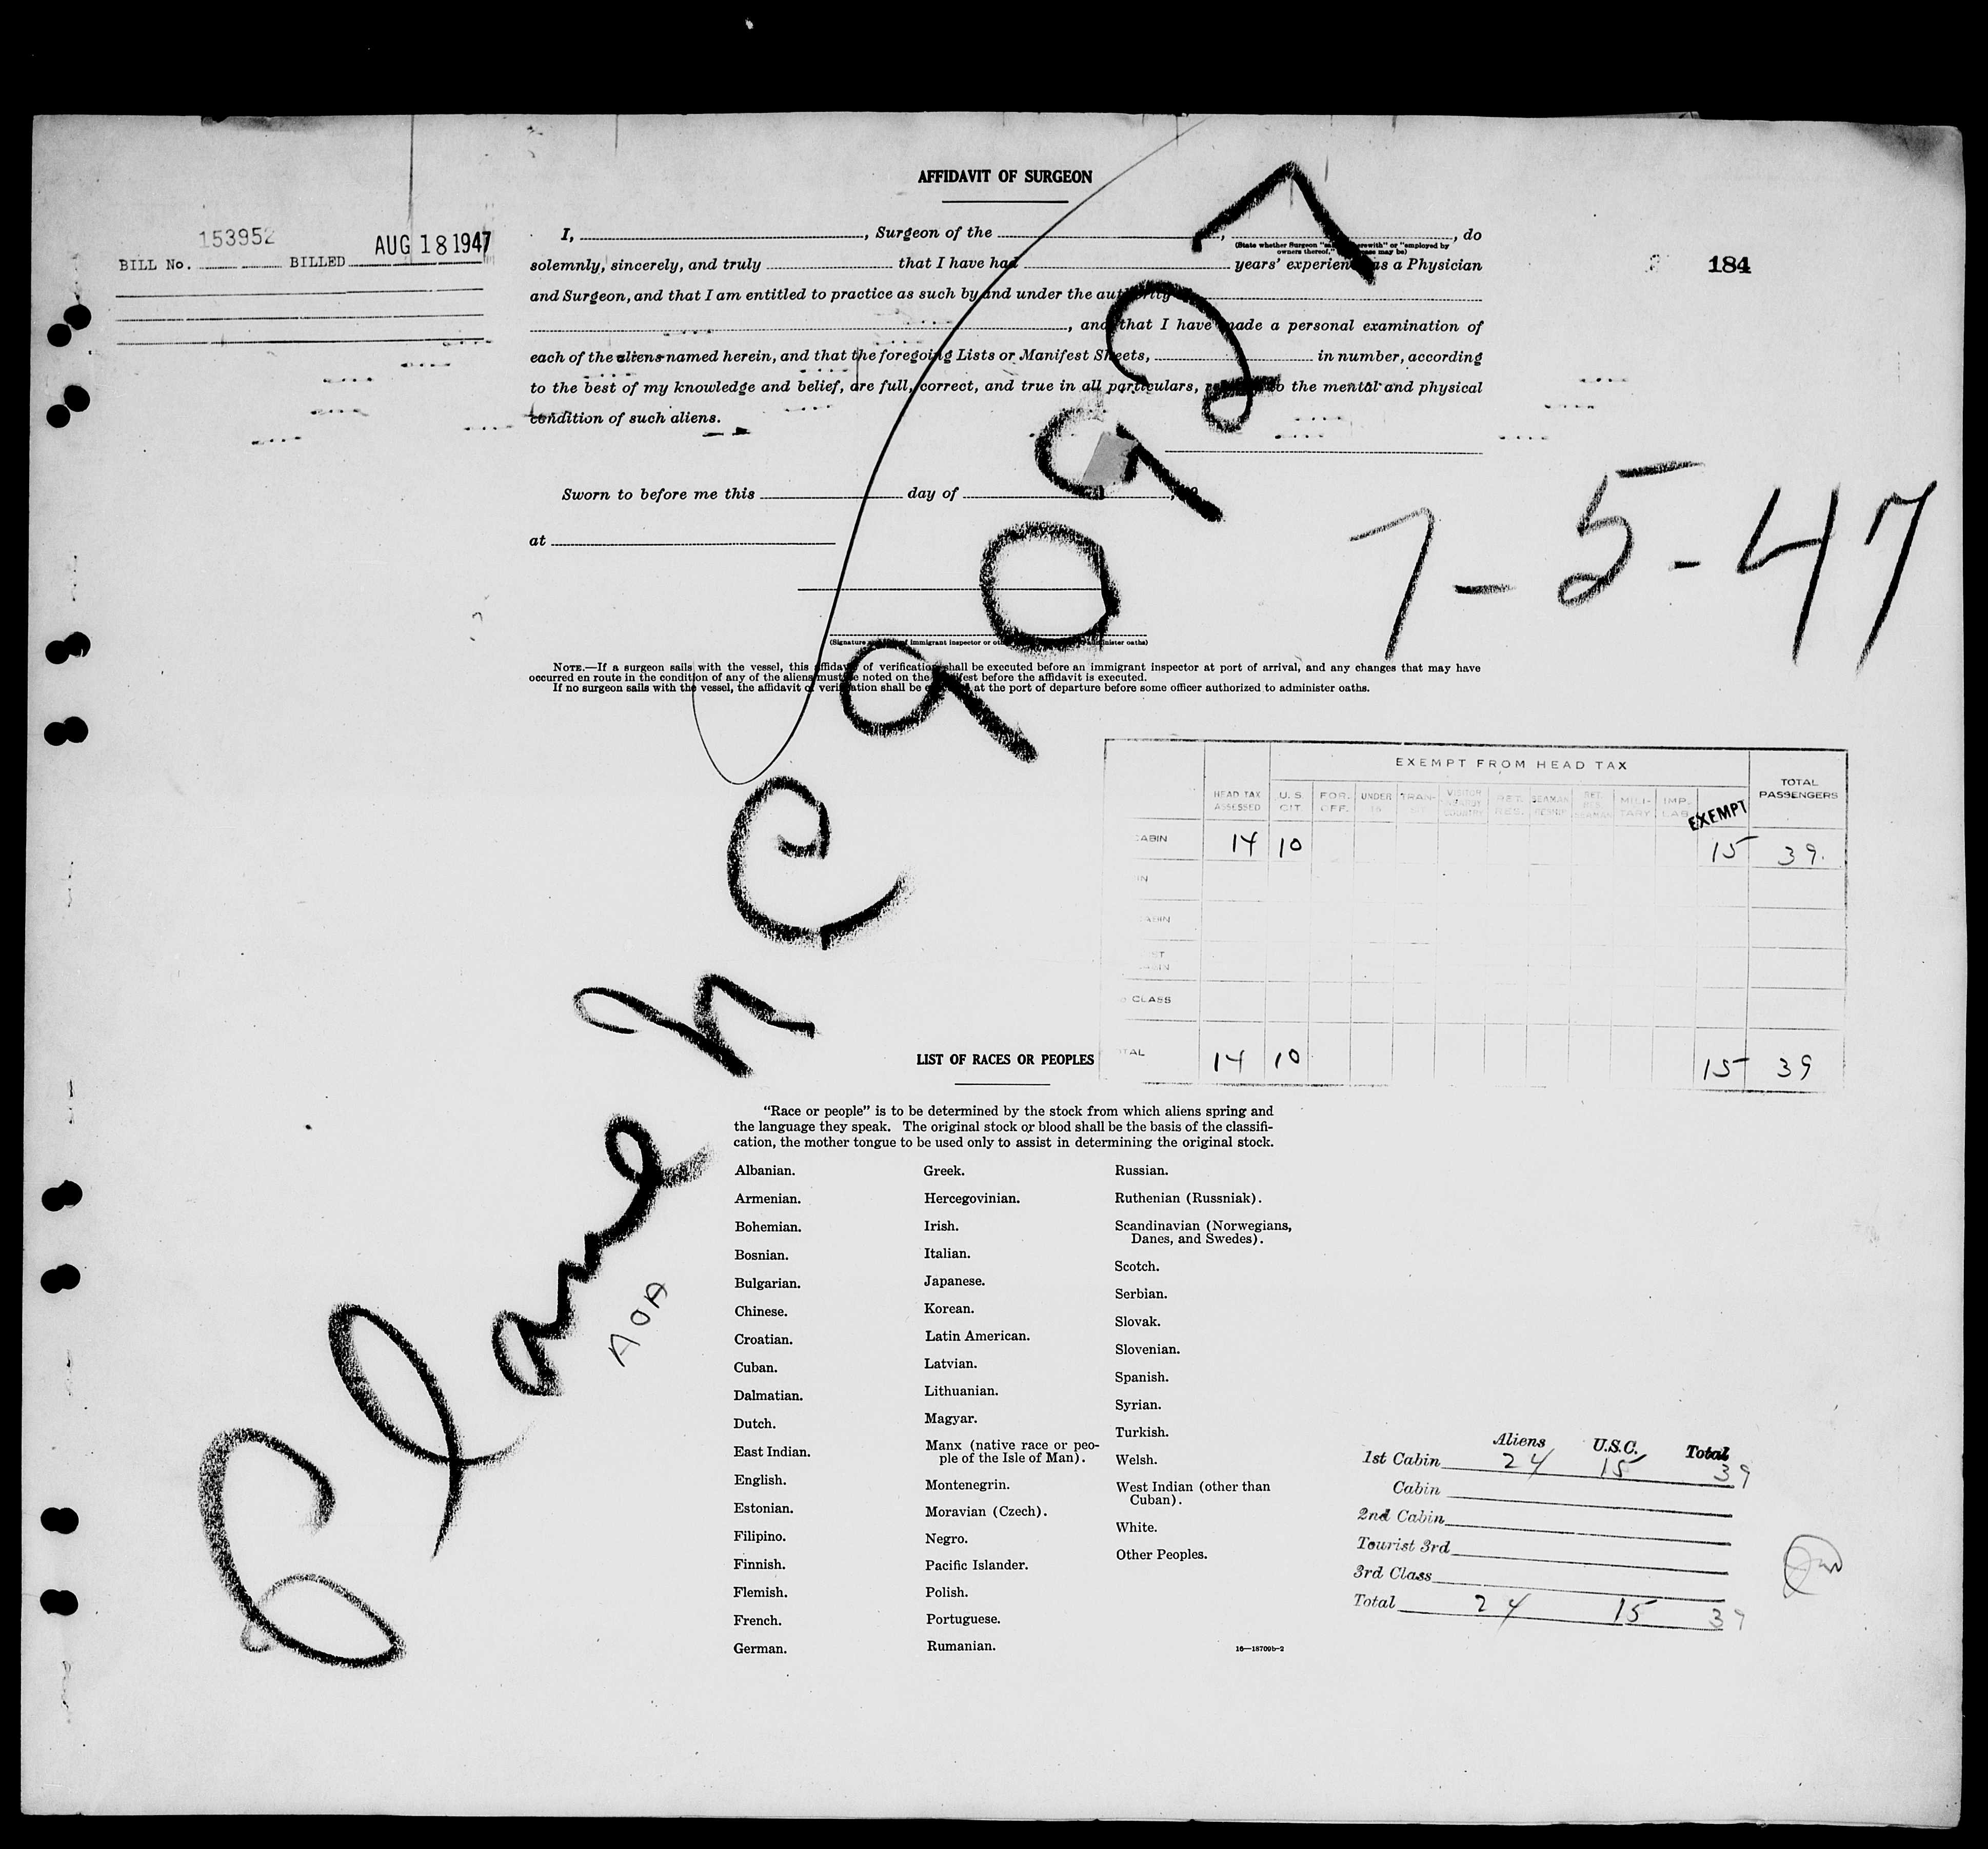 AFFIDAVIT OF SURGEON
153952
AUG 18 1947
BILL No. BILLED
184
I, , Surgeon of the , , do
(State whether Surgeon "sailing therewith" or "employed by
owners thereof," may be)
solemnly, sincerely, and truly that I have had years' experience as a Physician
and Surgeon, and that I am entitled to practice as such by and under the authority
, and that I have made a personal examination of
each of the aliens named herein, and that the foregoing Lists or Manifest Sheets, in number, according
to the best of my knowledge and belief, are full, correct, and true in all particulars, to the mental and physical
condition of such aliens.
Sworn to before me this day of , 19
at
(Signature of Immigrant inspector or administer oaths)
NOTE.—If a surgeon sails with the vessel, this affidavit of verification shall be executed before an immigrant inspector at port of arrival, and any changes that may have
occurred en route in the condition of any of the aliens must be noted on the manifest before the affidavit is executed.
If no surgeon sails with the vessel, the affidavit of verification shall be at the port of departure before some officer authorized to administer oaths.
Plane NC 90927
AOA
7-5-47
EXEMPT FROM HEAD TAX
HEAD TAX ASSESSED U.S. CIT. FOR. OFF. UNDER 16 RET. RES. MILITARY EXEMPT TOTAL PASSENGERS
CABIN 14 10 15 39.
IN
CABIN
CLASS
TAL 14 10 15 39
LIST OF RACES OR PEOPLES
"Race or people" is to be determined by the stock from which aliens spring and
the language they speak. The original stock or blood shall be the basis of the classifi-
cation, the mother tongue to be used only to assist in determining the original stock.
Albanian.
Armenian.
Bohemian.
Bosnian.
Bulgarian.
Chinese.
Croatian.
Cuban.
Dalmatian.
Dutch.
East Indian.
English.
Estonian.
Filipino.
Finnish.
Flemish.
French.
German.
Greek.
Hercegovinian.
Irish.
Italian.
Japanese.
Korean.
Latin American.
Latvian.
Lithuanian.
Magyar.
Manx (native race or peo-
ple of the Isle of Man).
Montenegrin.
Moravian (Czech).
Negro.
Pacific Islander.
Polish.
Portuguese.
Rumanian.
Russian.
Ruthenian (Russniak).
Scandinavian (Norwegians,
Danes, and Swedes).
Scotch.
Serbian.
Slovak.
Slovenian.
Spanish.
Syrian.
Turkish.
Welsh.
West Indian (other than
Cuban).
White.
Other Peoples.
16—18709b-2
Aliens U.S.C. Total
1st Cabin 24 15 39
Cabin
2nd Cabin
Tourist 3rd
3rd Class
Total 24 15 39